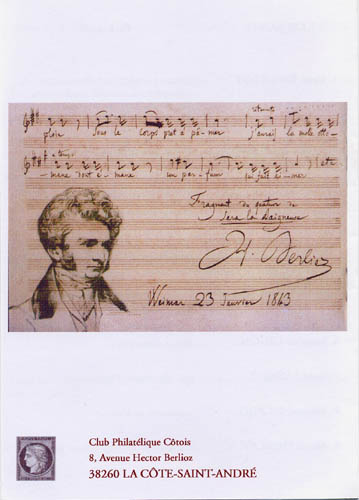 plein sous le corps prêt à pâmer j'aurai la molle otto-
mane dont é-mane un par-fum qui fait ai-mer
Fragment du quatuor de
Sara la Baigneuse
H. Berlioz
Weimar 23 Janvier 1863
Club Philatélique Côtois
8, Avenue Hector Berlioz
38260 LA CÔTE-SAINT-ANDRÉ